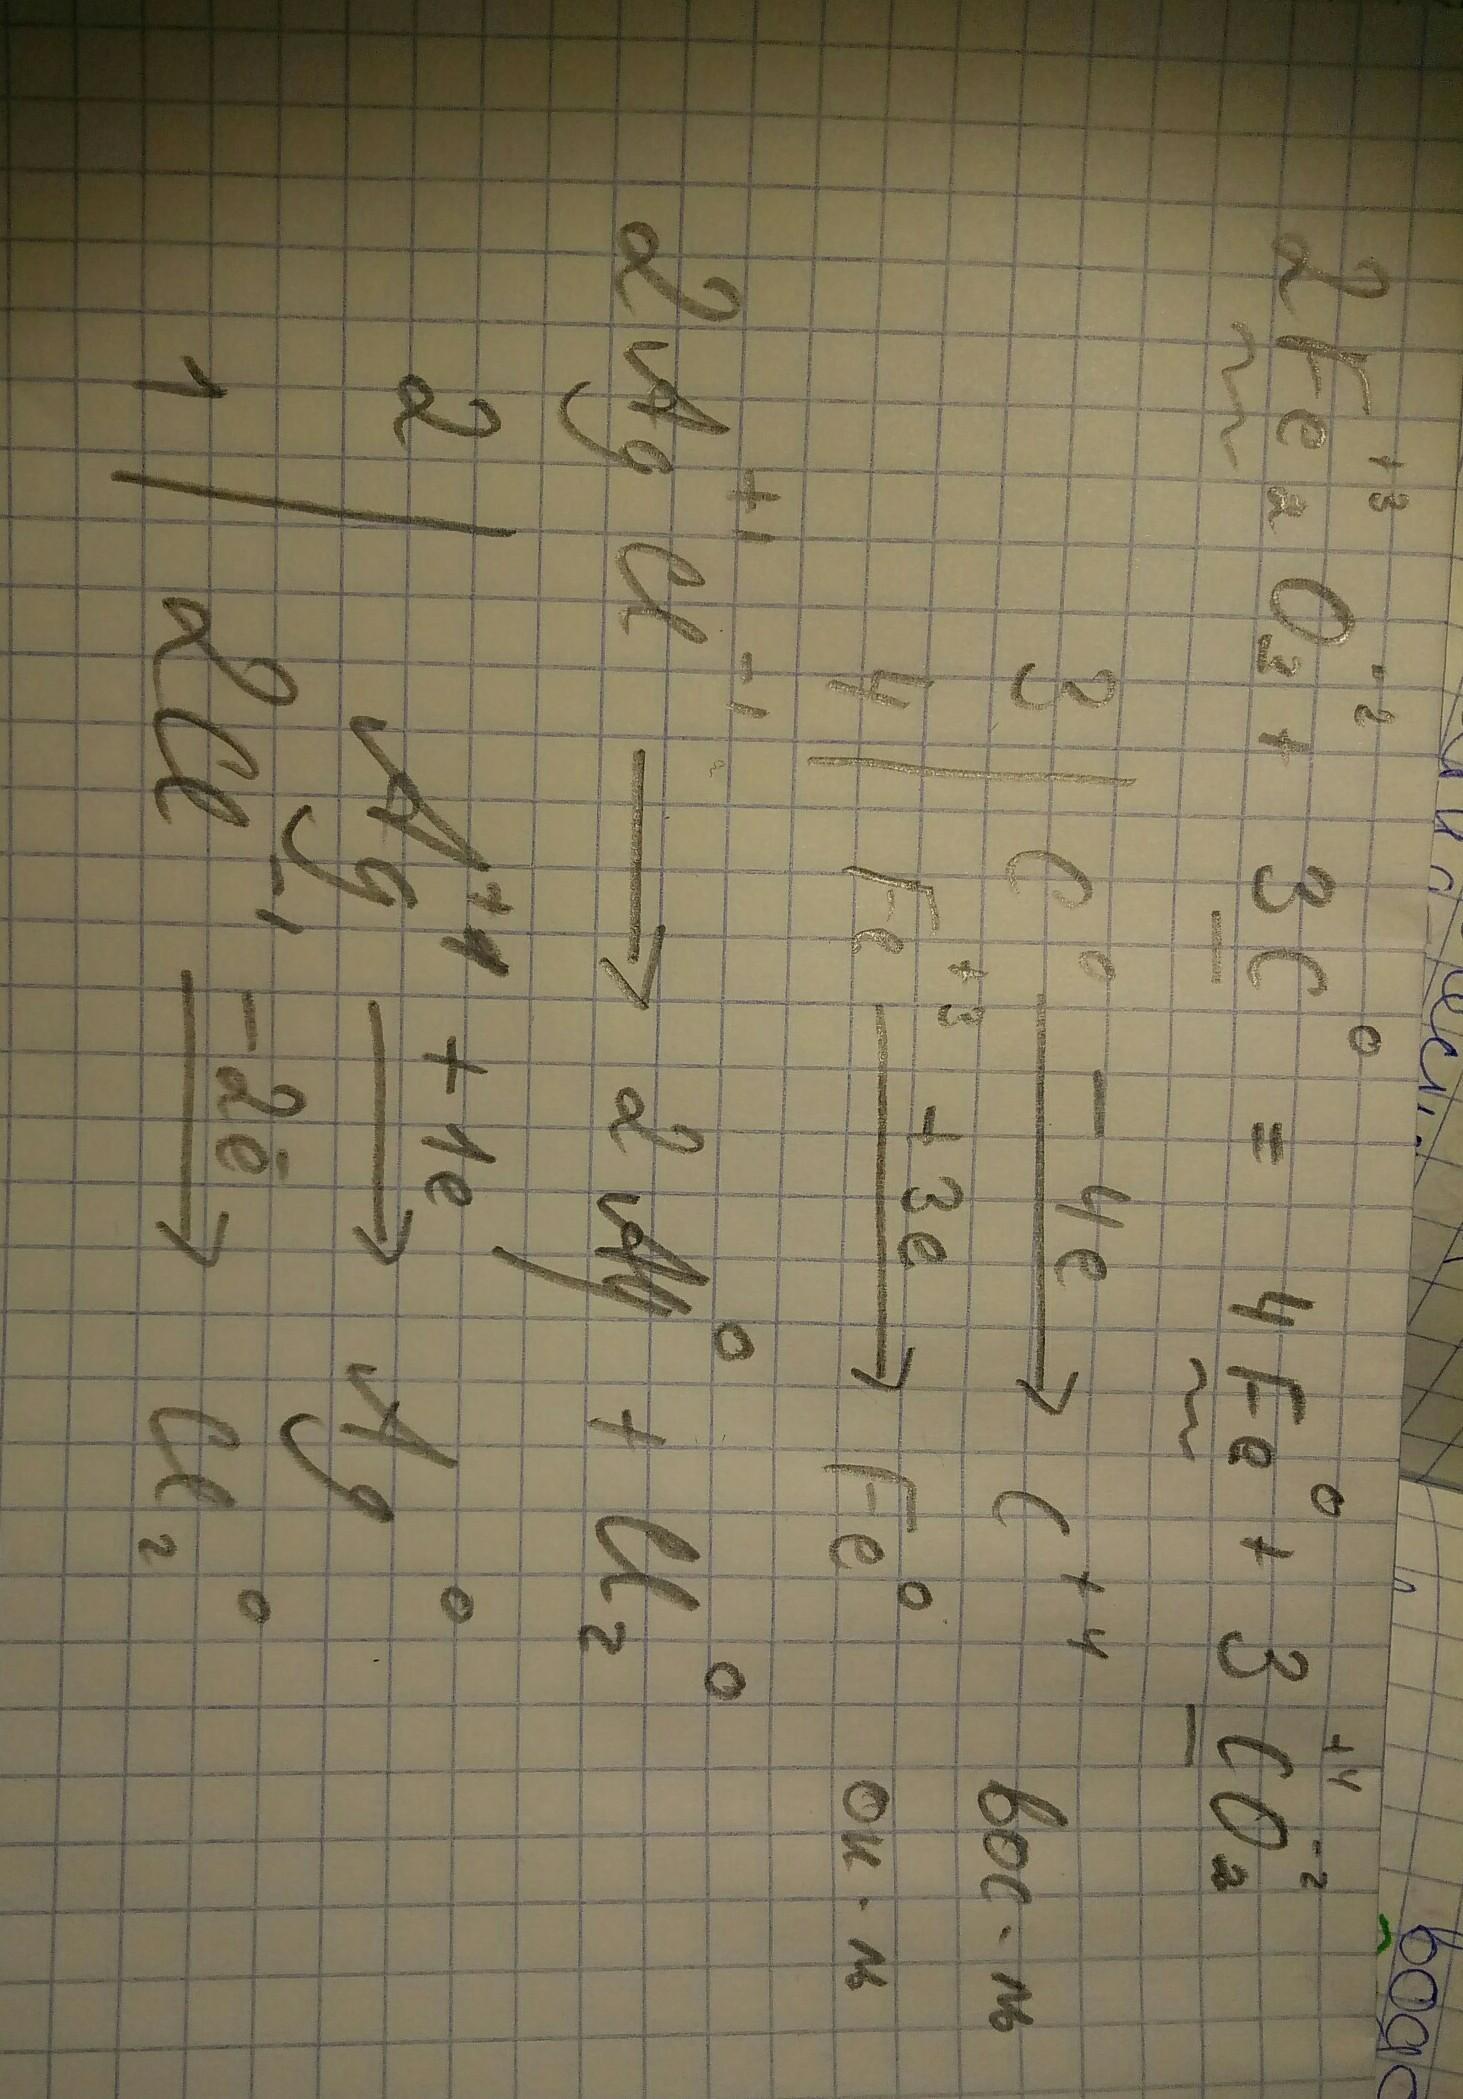 2Fe₂⁺³O₃⁻² + 3C⁰ = 4Fe⁰ + 3C⁺⁴O₂⁻²
3 | C⁰ – 4e → C⁺⁴ вос-ль
4 | Fe⁺³ + 3e → Fe⁰ ок-ль
2Ag⁺¹Cl⁻¹ → 2Ag⁰ + Cl₂⁰
2 | Ag⁺¹ + 1e → Ag⁰
1 | 2Cl⁻¹ – 2ē → Cl₂⁰